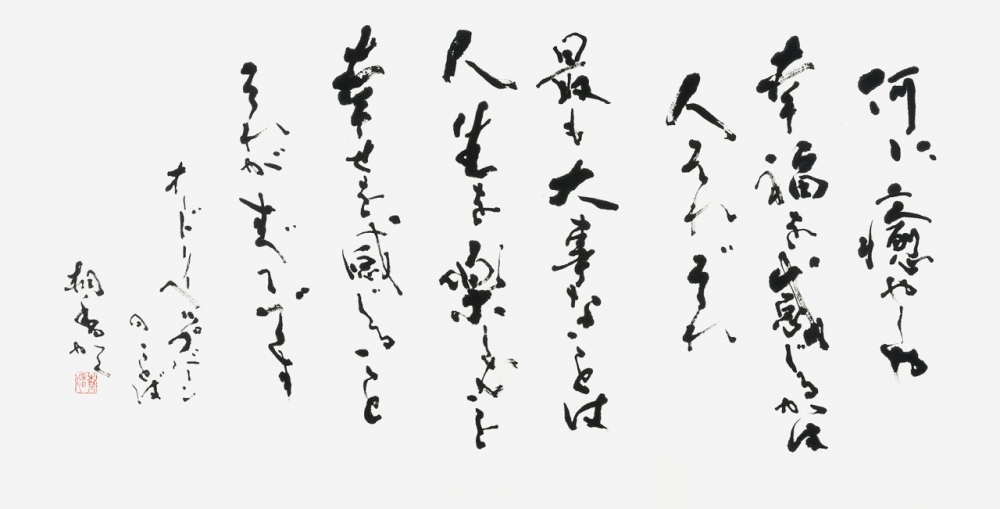 何に癒やしや
幸福を感じるかは
人それぞれ
最も大事なことは
人生を楽しむこと
幸せを感じること
それがすべてです
オードリーヘップバーン
のことば